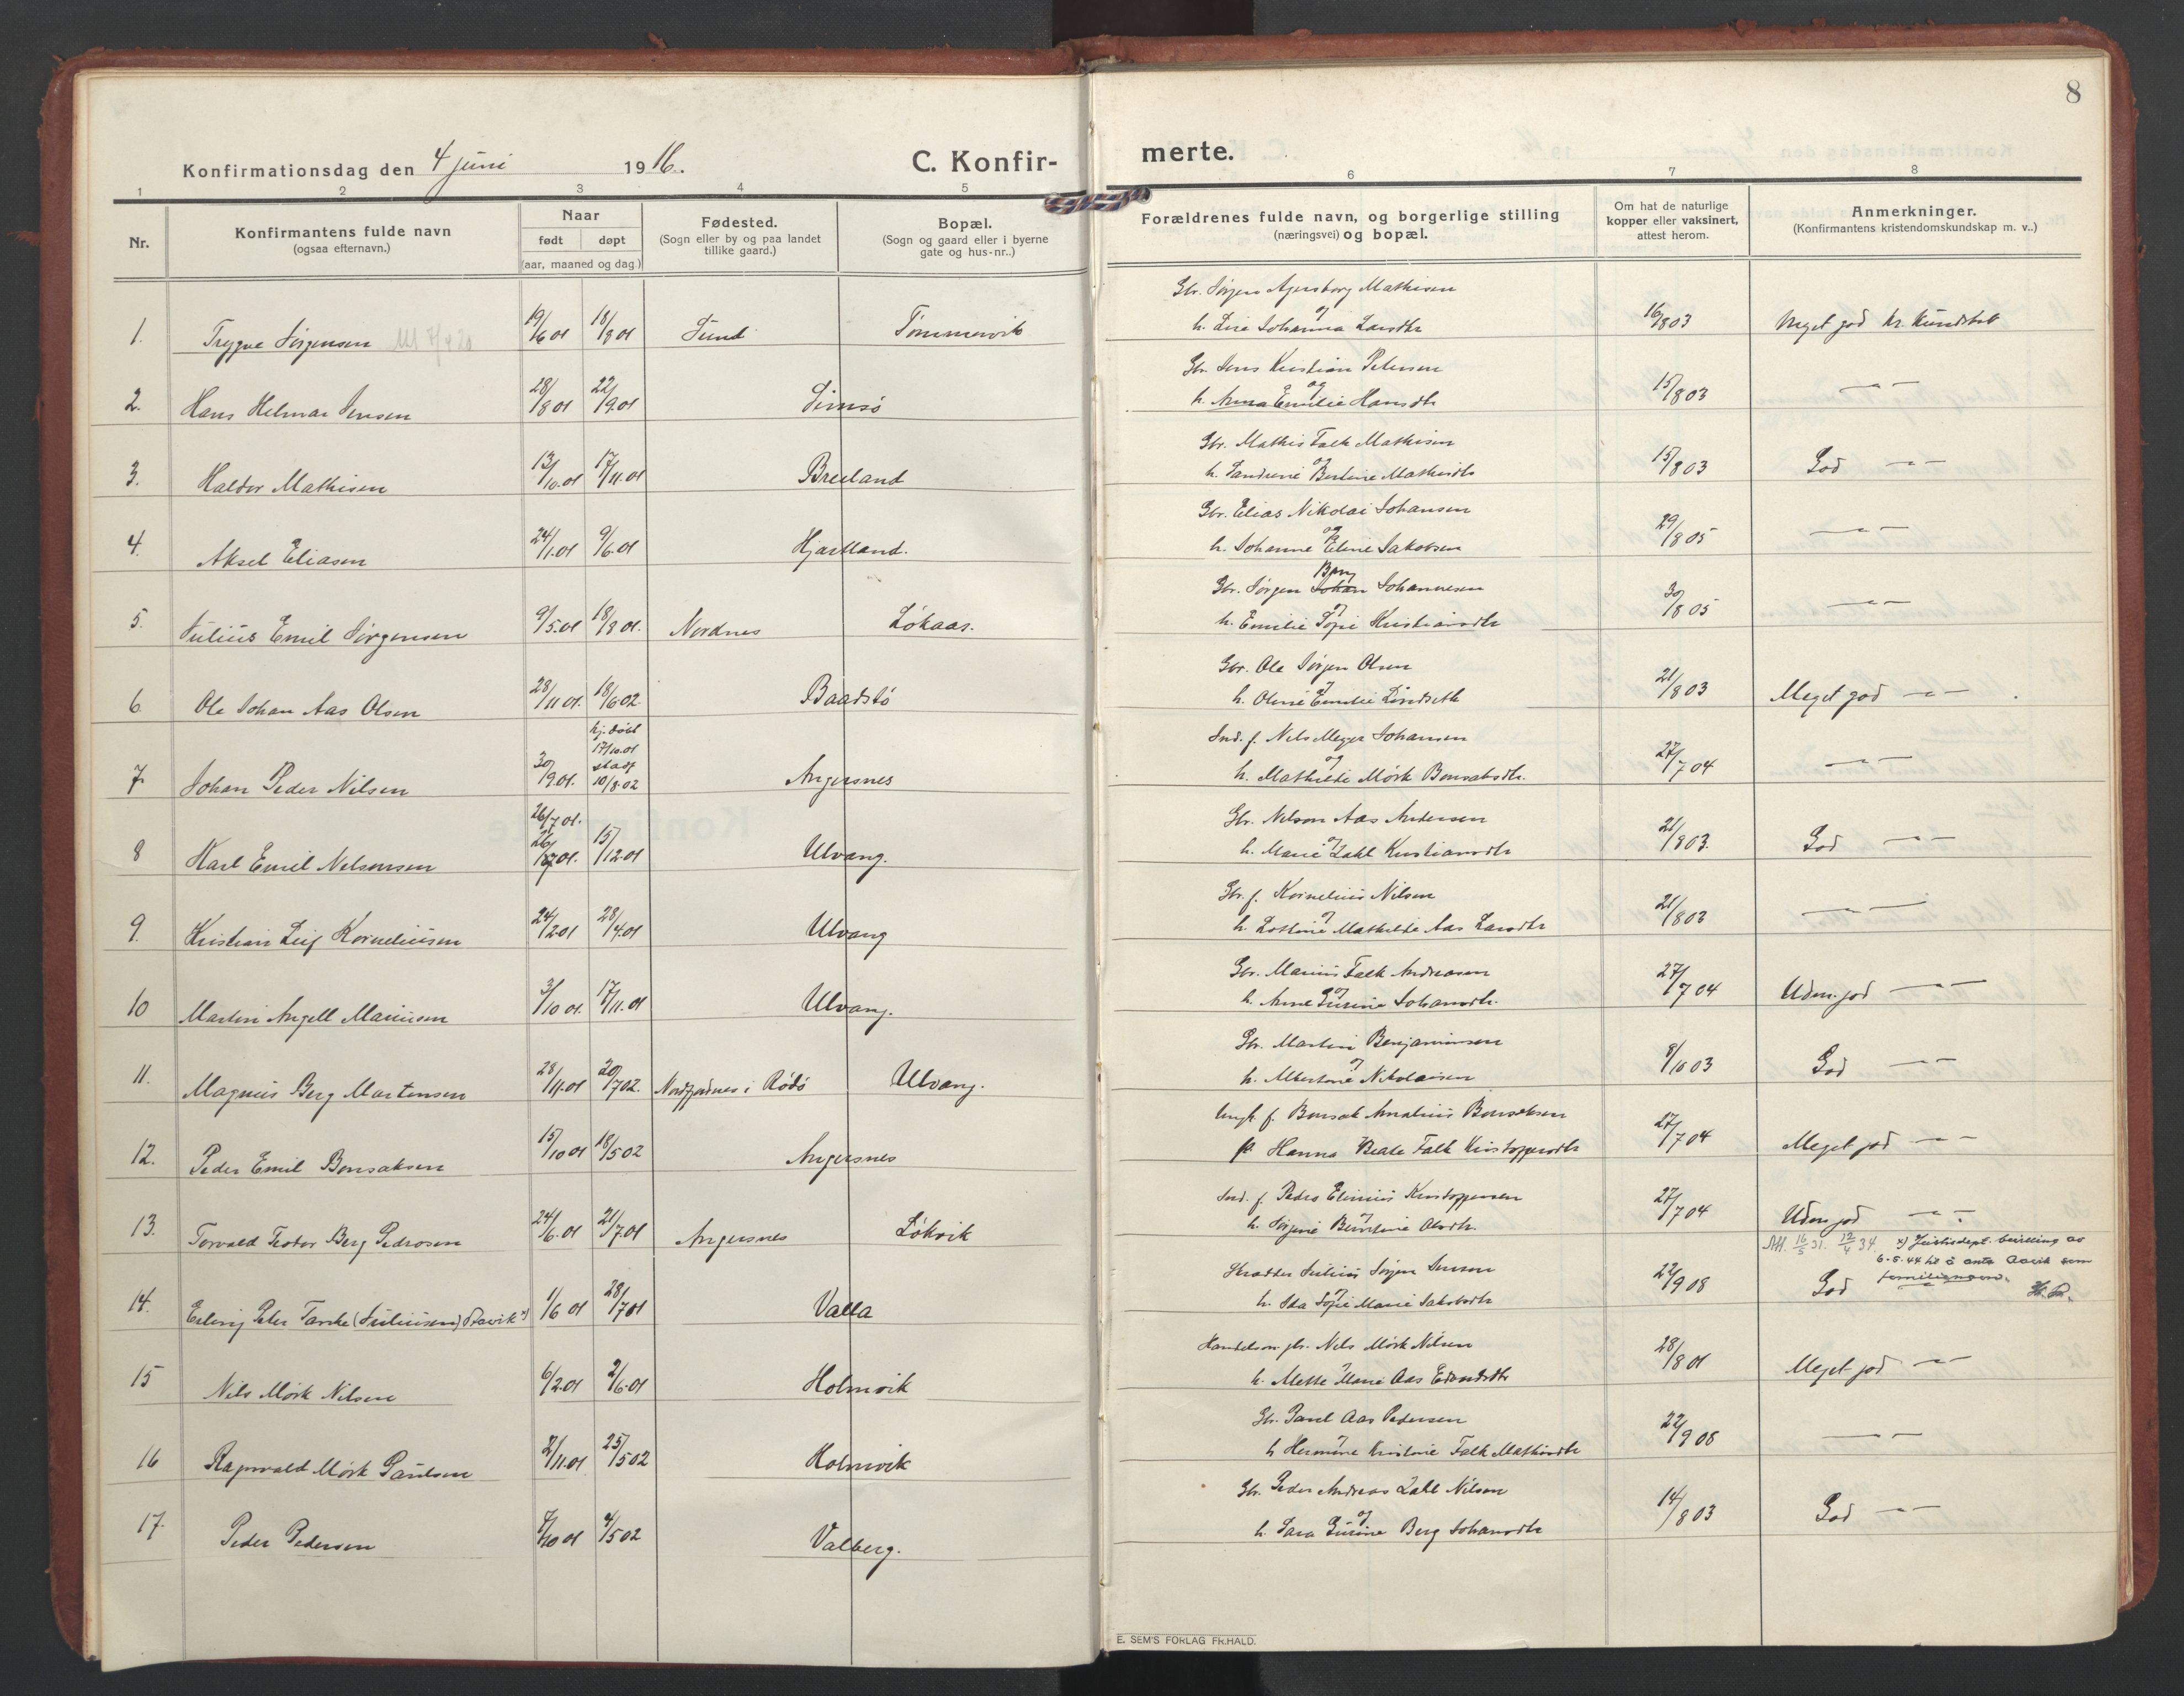 8
Konfirmationsdag den 4 juni 1916. C. Konfirmerte.
1 2 3 4 5 6 7 8
Nr.
Konfirmantens fulde navn
(ogsaa efternavn.)
Naar
født døpt
(aar, maaned og dag.)
Fødested.
(Sogn eller by og paa landet
tillike gaard.)
Bopæl.
(Sogn og gaard eller i byerne
gate og hus-nr..)
Forældrenes fulde navn, og borgerlige stilling
(næringsvei) og bopæl.
Om hat de naturlige
kopper eller vaksinert,
attest herom.
Anmerkninger.
(Konfirmantens kristendomskundskap m. v..)
Gbr. Jørgen Agersborg Mathisen
og
1. Trygve Jørgensen 19/6 01 18/8 01 Sund Tømmervik h. Lise Johanna Larsdtr 16/8 03 Meget god kr. kundskab
Gbr. Jens Kristian Petersen
og
2. Hans Helmar Jensen 28/8 01 22/9.01 Simsø h. Anna Emilie Hansdtr 15/8 03 — " —
Gbr. Mathis Falk Mathisen
og
3. Haldor Mathisen 13/10.01 17/11.01 Breiland h. Sandrine Bertine Mathisdtr 15/8 03 God — " —
Gbr. Elias Nikolai Johansen
og
4. Aksel Eliasen 24/1.01 9/6.01 Hjartland. h. Johanne Eline Jakobsen 29/8 05 — " —
Berg
Gbr. Jørgen Johan Johannesen
og
5. Julius Emil Jørgensen 9/5.01 18/8 01. Nordnes Løkaas. h. Emilie Sofie Kristiansdtr 30/8 05 — " —
Gbr. Ole Jørgen Olsen
og
6. Ole Johan Aas Olsen 28/11 01. 18/6 02 Baadstø h. Oline Emilie Lindseth 21/8 03 Meget god — " —
hj. døbt
17/10.01
stadf
Ind. f. Nels Meyer Johansen
og
7. Johan Peder Nilsen 30/9 01. 10/8.02 Angersnes h. Mathilde Mørk Bonsaksdtr. 27/7 04 — " —
26/7 01.
Gbr. Nelson Aas Andersen
og
8 Karl Emil Nelsonsen 26/8 01. 15/12.01 Ulvang. h. Marie Zahl Kristiansdtr 21/8 03. God — " —
Gbr. f. Kornelius Nilsen
og
9. Kristian Leif Korneliusen 24/2.01 28/4.01 Ulvang h. Lottine Mathilde Aas Larsdtr 21/8 03 — " —
Gbr. Marius Falk Andreasen
og
10 Martin Angell Mariusen 3/10 01. 17/11.01 Ulvang. h. Anne Gurine Johansdtr. 27/7 04 Udm. god — " —
Gbr. Martin Benjaminsen
og
11. Magnus Berg Martensen 28/11.01 20/7 02. Nordfjordnes i Rødø Ulvang. h. Albertine Nikolaisen 8/10 03 God — " —
Ungk. f. Bonsak Amalius Bonsaksen
12. Peder Emil Bonsaksen 15/10 01 18/5 02 Angersnes p. Hanna Beate Falk Kristoffersdtr 27/7 04 Meget god — " —
Ind. f. Pedro Elinius Kristoffersen
og
13. Torvald Teodor Berg Pedrosen 24/6.01 21/7.01 Angersnes Løkvik h. Jørgine Berntine Olsdtr. 27/7 04 Udm god — " —
Att. 16/5 31. 12/4 34. x) Justisdept. bevilling av
6-5-44 til å anta Aavik som
familienavn.
H. P.
Skrædder Julius Jørgen Jensen
og
14. Erling Peter Tanke (Juliusen) Aavik x) 1/6 01 28/7 01 Valla h. Ida Sofie Marie Jakobsdtr 22/9 08 God
Handelsm. gbr. Nils Mørk Nilsen
og
15 Nils Mørk Nilsen 6/2.01 2/6.01 Holmvik h. Mette Marie Aas Edvardsdtr 28/8 01 Meget god — " —
Gbr. Paul Aas Pedersen
og
16 Ragnvald Mørk Paulsen 2/11.01 25/5 02 Holmvik h. Hermine Kristine Falk Mathisdtr 22/9 08 — " —
Gbr. Peder Andreas Zahl Nilsen
og
17. Peder Pedersen 7/10 01 4/5 02 Valberg. h. Sara Gurine Berg Johansdtr 14/8 03 God — " —
E. SEM'S FORLAG FR.HALD.